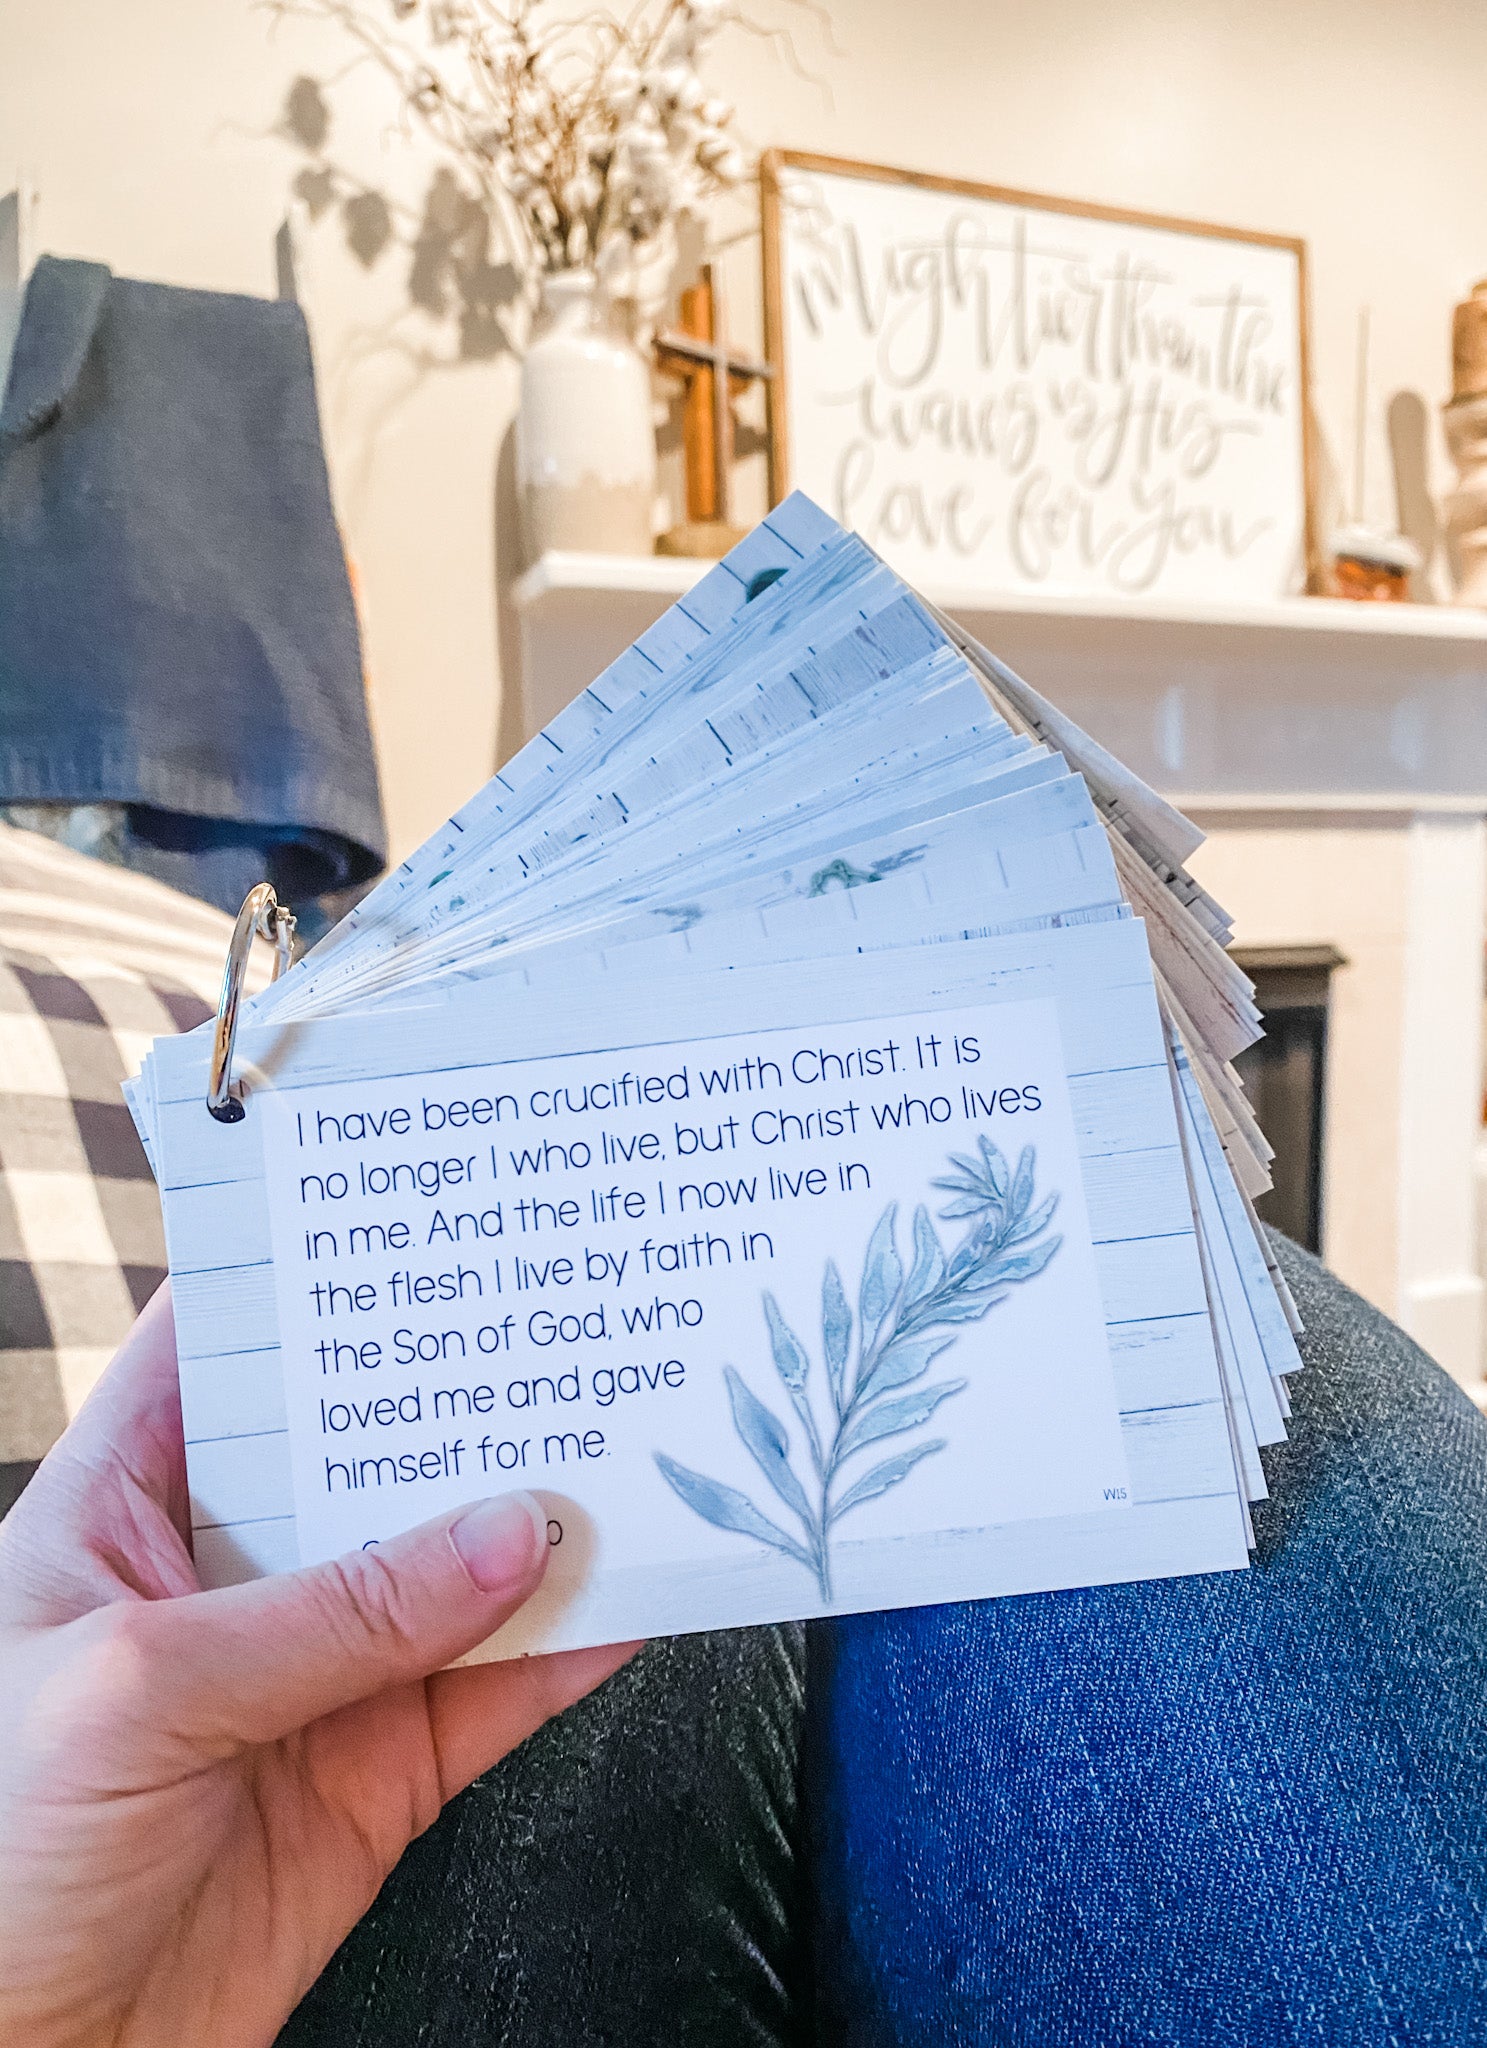 Mightier than the
waves is His
love for you
I have been crucified with Christ. It is
no longer I who live, but Christ who lives
in me. And the life I now live in
the flesh I live by faith in
the Son of God, who
loved me and gave
himself for me.
W15